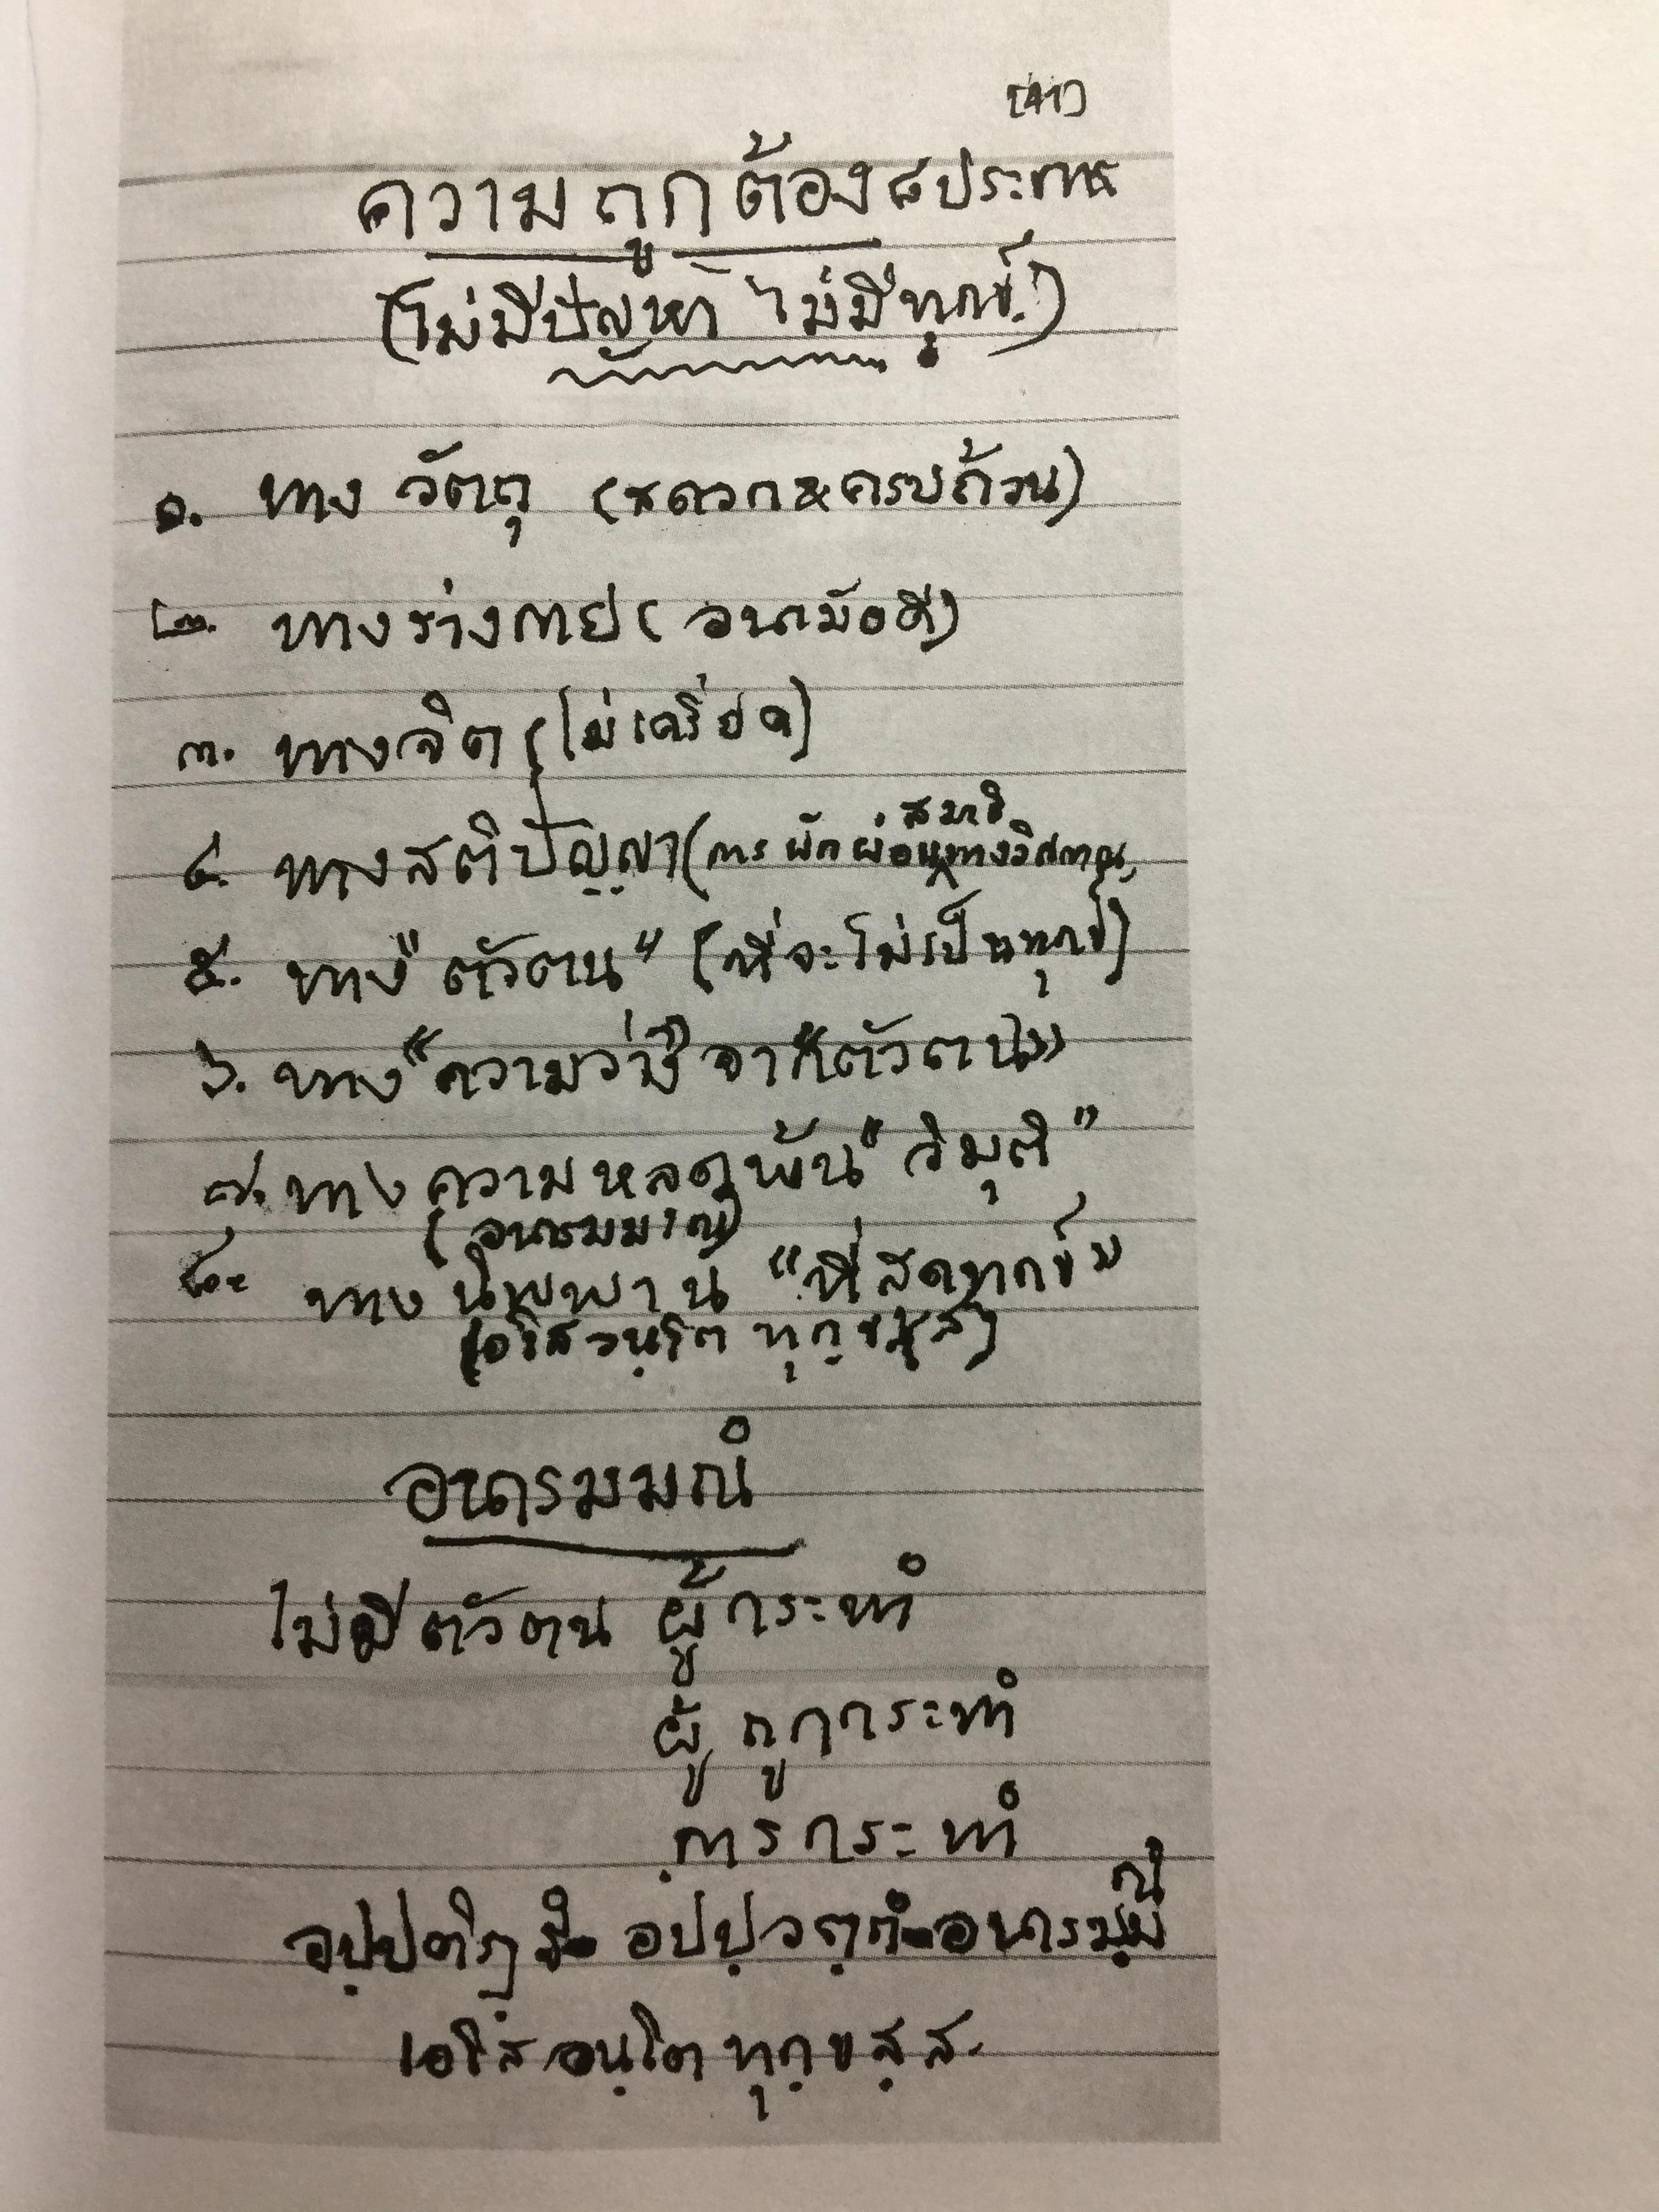 ความถูกต้อง ๘ ประการ
(ไม่มีปัญหา ไม่มีทุกข์!)
๑. ทางวัตถุ (สดวก & ครบถ้วน)
๒. ทางร่างกาย (อนามัยดี)
๓. ทางจิต (ไม่เครียด)
สมาธิ
๔. ทางสติปัญญา (การพักผ่อนทางวิญญาณ)
๕. ทาง "ตัวตน" (ที่จะไม่เป็นทุกข์)
๖. ทาง "ความว่าง" จาก "ตัวตน"
๗. ทางความหลุดพ้น "วิมุติ"
(อนารมมณ)
๘. ทางนิพพาน "ที่สุดทุกข์"
(เอโสวนฺโต ทุกฺขสฺส)
อนารมมณํ
ไม่มีตัวตน ผู้กระทำ
ผู้ถูกกระทำ
การกระทำ
อปฺปติฏฺฐํ - อปฺปวตฺตํ - อนารมฺมณํ
เอโส อนฺโต ทุกฺขสฺส.